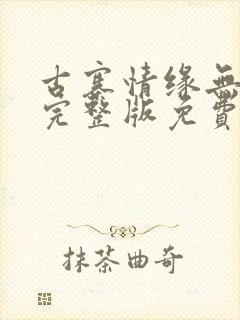 古寨情缘無
完整版免費
抹茶曲奇